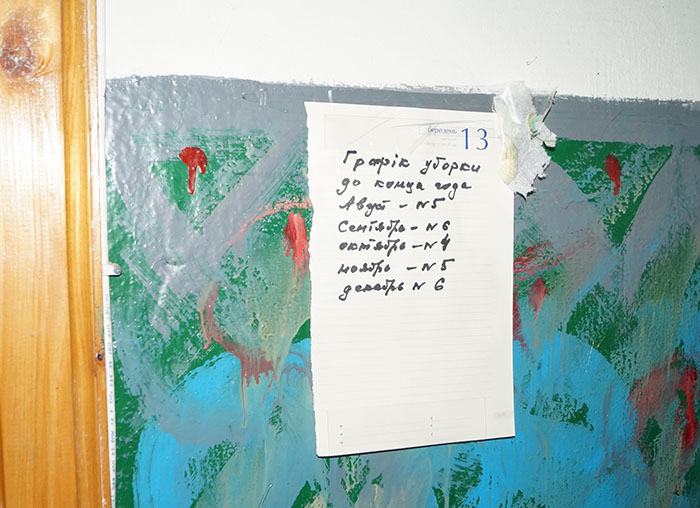 березень 13
Графік уборки
до конца года
Август - N5
Сентябрь - N 6
октябрь - N4
ноябрь - N5
декабрь N 6